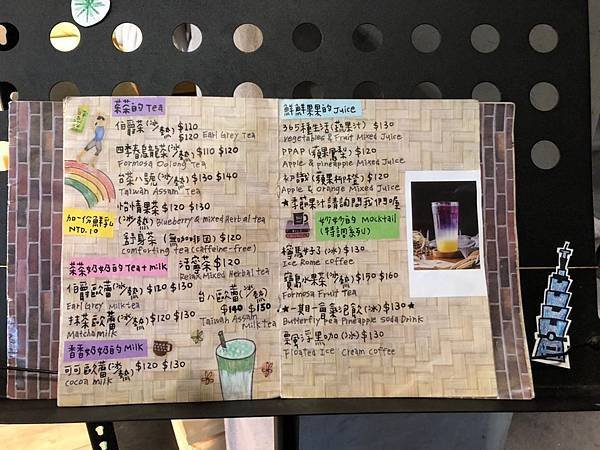 茶茶的 Tea
伯爵茶(冰/熱) $120
$120 Earl Grey Tea
四季春烏龍茶(冰/熱) $110 $120
Formosa Oolong Tea
台茶八號(冰/熱) $130 $140
Taiwan Assam Tea
恰情果茶 $120 $130
(冰/熱) Blueberry & mixed Herbal tea
加一份鮮乳
NTD.10
舒烏茶 (無咖啡因) $120
comforting tea (caffeine-free)
活靈茶 $120
Relax Mixed Herbal tea
茶茶奶奶的 Tea + milk
伯爵歐蕾(冰/熱) $120 $130
Earl Grey Milktea
抹茶歐蕾(冰/熱) $120 $130
Matcha milk
台八歐蕾(冰/熱)
$140 $150
Taiwan Assam
Milk tea
香香奶奶的 Milk
可可歐蕾(冰/熱) $120 $130
cocoa milk
鮮鮮果果的 Juice
365種生活(蔬果汁) $130
vegetables & Fruit Mixed Juice
PPAP (蘋果鳳梨) $120
Apple & pineapple Mixed Juice
初識 (蘋果柳橙) $120
Apple & Orange Mixed Juice
★季節果汁請詢問我們喔
奶奶的 Mocktail
(特調系列)
檸馬好了(冰) $130
Ice Rome coffee
寶島水果茶(冰/熱) $150 $160
Formosa Fruit Tea
★一期一會氣泡飲(冰) $130★
Butterfly Tea Pineapple Soda Drink
飄浮黑咖(冰) $130
Floated Ice Cream coffee